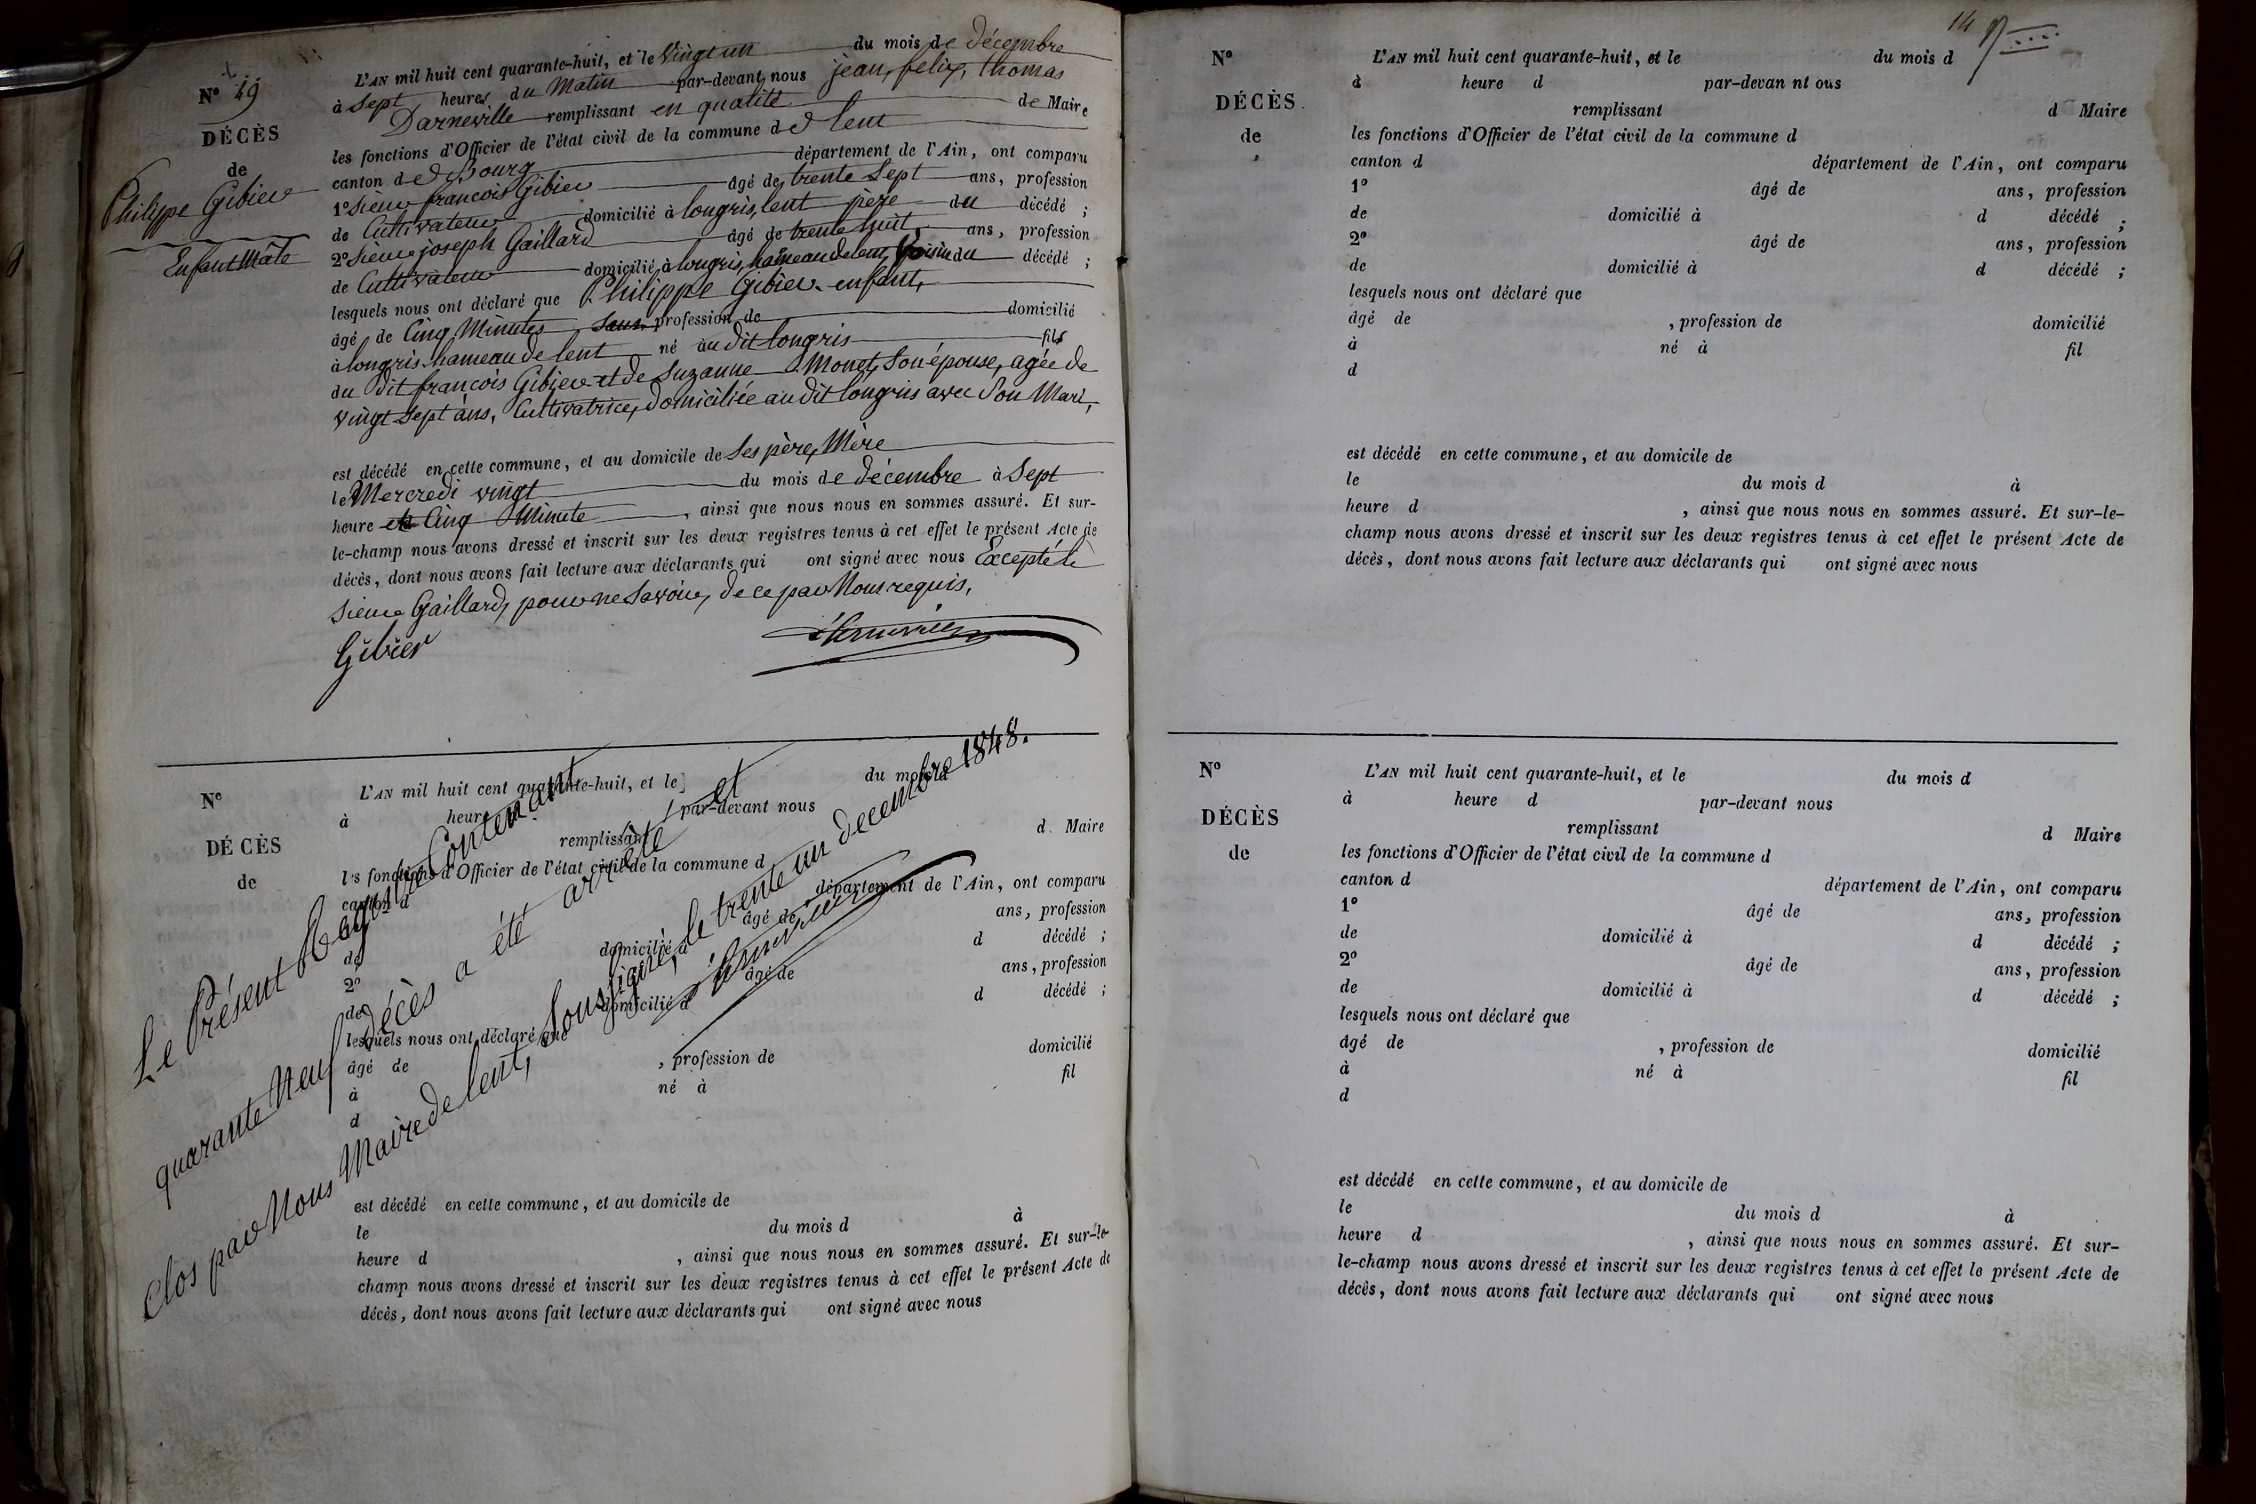 Nº 49
DÉCÈS
de
Philippe Gibier
Enfant Mâle
L'AN mil huit cent quarante-huit, et le Vingt un du mois de décembre
à Sept heures du Matin par-devant nous jean, felix, thomas
Darneville remplissant en qualité de Maire
les fonctions d'Officier de l'état civil de la commune de lent
canton de Bourg département de l'Ain, ont comparu
1º Sieur françois Gibier âgé de trente Sept ans, profession
de Cultivateur domicilié à longris, lent père du décédé ;
2º Sieur joseph Gaillard âgé de trente huit ans, profession
de Cultivateur domicilié à longris, hameau de lent, Voisin du décédé ;
lesquels nous ont déclaré que Philippe Gibier enfant,
âgé de Cinq Minutes, sans profession de domicilié
à longris hameau de lent né au dit longris fils
du dit françois Gibier et de Suzanne Monet, Son épouse, agée de
vingt Sept ans, Cultivatrice, domiciliée au dit longris avec Son Mari,
est décédé en cette commune, et au domicile de Ses père, Mère
le Mercredi vingt du mois de décembre à Sept
heure et Cinq Minute , ainsi que nous nous en sommes assuré. Et sur-
le-champ nous avons dressé et inscrit sur les deux registres tenus à cet effet le présent Acte de
décès, dont nous avons fait lecture aux déclarants qui ont signé avec nous Excepté le
Sieur Gaillard, pour ne Savoir, de ce par Nous requis,
Gibier
Nº
DÉCÈS
de
L'AN mil huit cent quarante-huit, et le du mois d
à heure par-devant nous
remplissant d Maire
les fonctions d'Officier de l'état civil de la commune d
canton d département de l'Ain, ont comparu
âgé de ans, profession
de domicilié à d décédé ;
2º âgé de ans, profession
de domicilié à d décédé ;
lesquels nous ont déclaré que
âgé de , profession de domicilié
à né à fil
d
est décédé en cette commune, et au domicile de
le du mois d à
heure d , ainsi que nous nous en sommes assuré. Et sur-le-
champ nous avons dressé et inscrit sur les deux registres tenus à cet effet le présent Acte de
décès, dont nous avons fait lecture aux déclarants qui ont signé avec nous
Le Présent Registre Contenant
quarante Neuf décès a été arrêté et
Clos par Nous Maire de lent, Soussigné, le trente un decembre 1848.
14
Nº
DÉCÈS
de
L'AN mil huit cent quarante-huit, et le du mois d
à heure d par-devan nt ous
remplissant d Maire
les fonctions d'Officier de l'état civil de la commune d
canton d département de l'Ain, ont comparu
1º âgé de ans, profession
de domicilié à d décédé ;
2º âgé de ans, profession
de domicilié à d décédé ;
lesquels nous ont déclaré que
âgé de , profession de domicilié
à né à fil
d
est décédé en cette commune, et au domicile de
le du mois d à
heure d , ainsi que nous nous en sommes assuré. Et sur-le-
champ nous avons dressé et inscrit sur les deux registres tenus à cet effet le présent Acte de
décès, dont nous avons fait lecture aux déclarants qui ont signé avec nous
Nº
DÉCÈS
de
L'AN mil huit cent quarante-huit, et le du mois d
à heure d par-devant nous
remplissant d Maire
les fonctions d'Officier de l'état civil de la commune d
canton d département de l'Ain, ont comparu
1º âgé de ans, profession
de domicilié à d décédé ;
2º âgé de ans, profession
de domicilié à d décédé ;
lesquels nous ont déclaré que
âgé de , profession de domicilié
à né à fil
d
est décédé en cette commune, et au domicile de
le du mois d à
heure d , ainsi que nous nous en sommes assuré. Et sur-
le-champ nous avons dressé et inscrit sur les deux registres tenus à cet effet le présent Acte de
décès, dont nous avons fait lecture aux déclarants qui ont signé avec nous